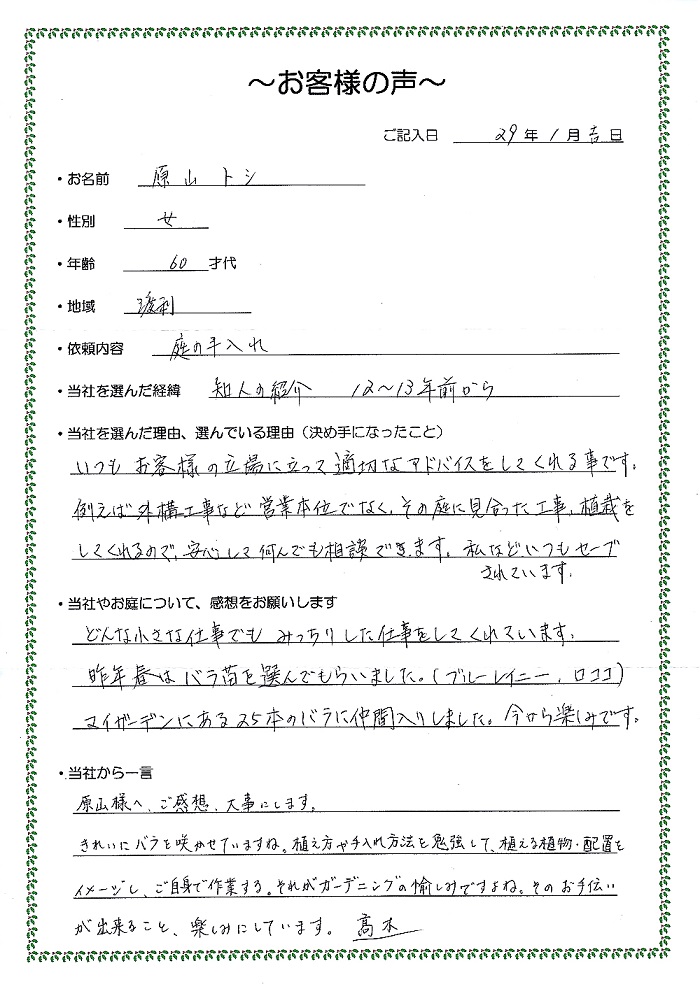 ～お客様の声～
ご記入日 29年1月吉日
・お名前 原山 トシ
・性別 女
・年齢 60才代
・地域 渡利
・依頼内容 庭の手入れ
・当社を選んだ経緯 知人の紹介 12〜13年前から
・当社を選んだ理由、選んでいる理由（決め手になったこと）
いつもお客様の立場に立って適切なアドバイスをしてくれる事です。
例えば外構工事など営業本位でなく、その庭に見合った工事、植栽を
してくれるので、安心して何んでも相談できます。私などいつもセーブ
されています。
・当社やお庭について、感想をお願いします
どんな小さな仕事でもみっちりした仕事をしてくれています。
昨年春はバラ苗を選んでもらいました。(ブルーレイニー、ロココ)
マイガーデンにある25本のバラに仲間入りしました。今から楽しみです。
・当社から一言
原山様へ、ご感想、大事にします。
きれいにバラを咲かせていますね。植え方や手入れ方法を勉強して、植える植物・配置を
イメージし、ご自身で作業する。それがガーデニングの愉しみですよね。そのお手伝い
が出来ること、楽しみにしています。 高木